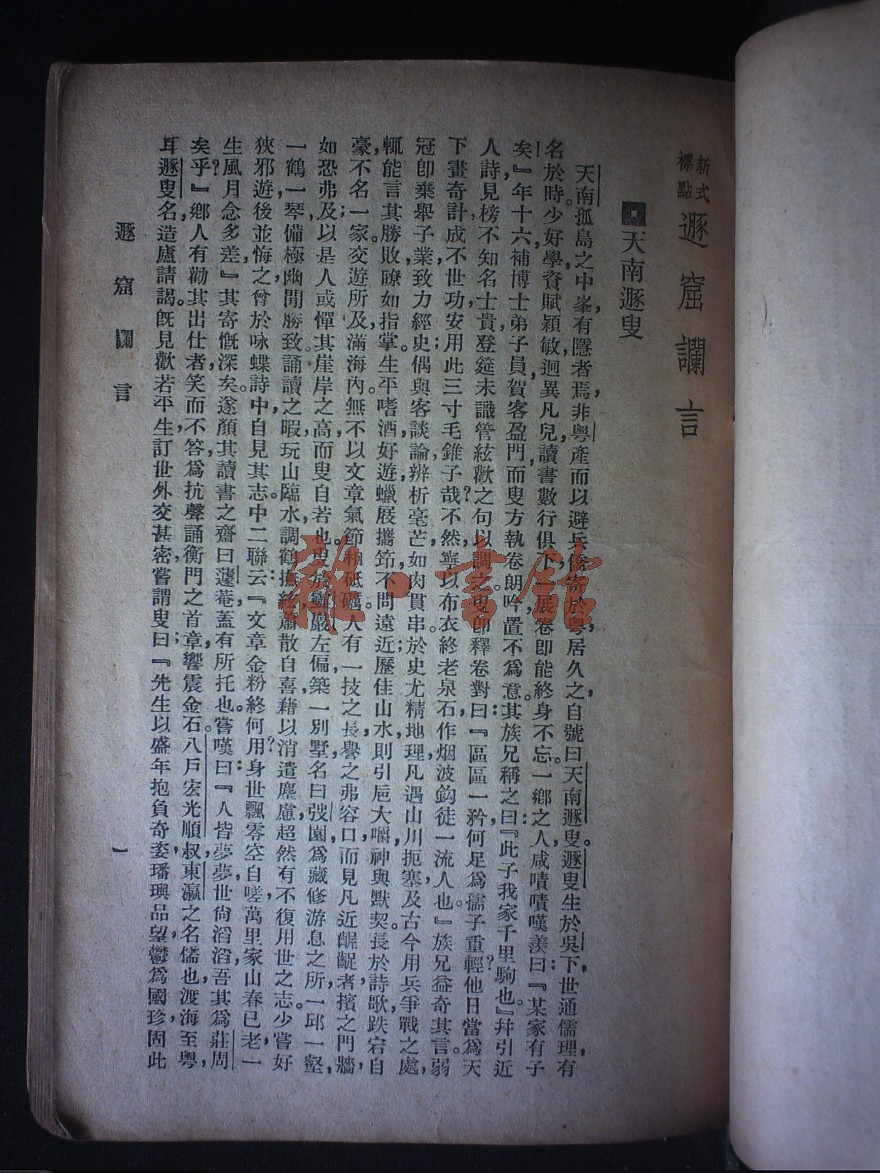 新式標點 遯窟讕言
天南遯叟
天南孤島之中峯,有隱者焉,非粵產而以避兵僑寄於粵,居久之,自號曰天南遯叟。遯叟生於吳下,世通儒理,有
名於時。少好學,資賦穎敏,迥異凡兒,讀書數行俱下,一展卷卽能終身不忘。一鄉之人,咸嘖嘖嘆羨曰:『某家有子
矣!』年十六,補博士弟子員,賀客盈門,而叟方執卷朗吟,置不爲意。其族兄稱之曰:『此子我家千里駒也。』幷引近
人詩見榜不知名士貴,登筵未識管絃歡之句以調之。叟卽釋卷對曰:『區區一矜,何足爲孺子重輕?他日當爲天
下畫奇計,成不世功,安用此三寸毛錐子哉?不然,寧以布衣終老泉石,作烟波釣徒一流人也。』族兄益奇其言。弱
冠卽棄舉子業,致力經史,偶與客談論,辨析毫芒,如肉貫串;於史尤精地理,凡遇山川扼塞,及古今用兵爭戰之處,
輒能言其勝敗,瞭如指掌。生平嗜酒好遊,蠟屐攜筇,不問遠近;歷佳山水,則引巵大嚼,神與默契。長於詩歌,跌宕自
豪,不名一家;交遊所及,滿海內,無不以文章氣節相砥礪。人有一技之長,譽之弗容口,而見凡近齷齪者,擯之門牆,
如恐弗及,以是人或憚其崖岸之高,而叟自若也。叟於 左偏,築一別墅,名曰弢園,爲藏修游息之所,一邱一壑,
一鶴一琴,備極幽閒勝致。誦讀之暇,玩山臨水,調鶴撫絃,蕭散自喜,藉以消遣塵慮,超然有不復用世之志。少嘗好
狹邪遊,後並悔之,曾於咏蝶詩中自見其志。中二聯云:『文章金粉終何用?身世飄零空自嗟,萬里家山春已老,一
生風月念多差。』其寄慨深矣。遂顏其讀書之齋曰蘧菴,蓋有所托也。嘗嘆曰:『人皆夢夢,世尙滔滔,吾其爲莊周
矣乎?』鄉人有勸其出仕者,笑而不答,爲抗聲誦衡門之首章,響震金石。八戶宏光順叔,東瀛之名儒也,渡海至粵,
耳遯叟名,造廬請謁。旣見,歡若平生,訂世外交甚密;嘗謂叟曰:『先生以盛年抱負奇姿,璠璵品望,鬱爲國珍,固此
遯窟讕言 一